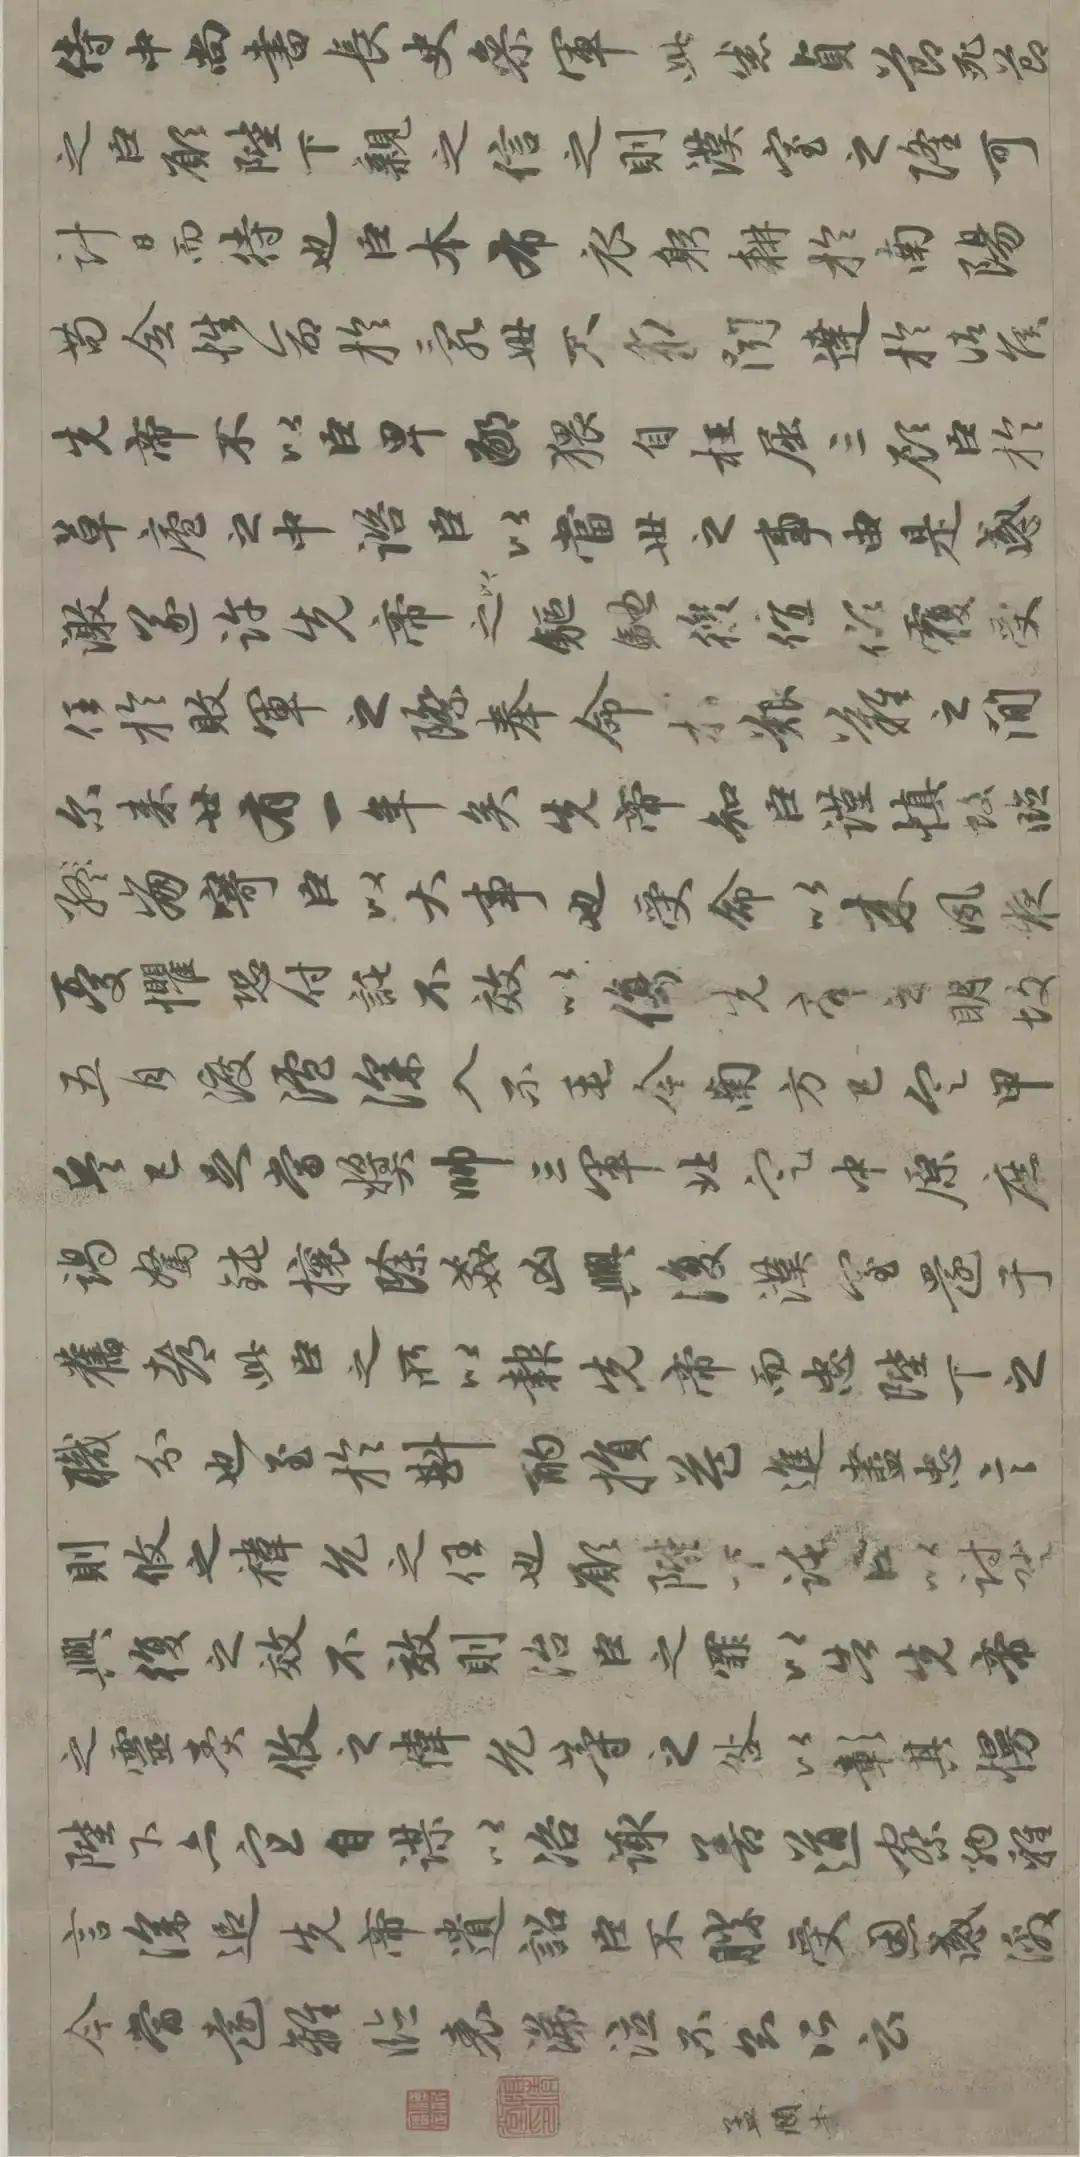 侍中尚書長史參軍此悉貞節死節
之臣願陛下親之信之則漢室之隆可
計日而待也臣本布衣躬耕於南陽
苟全性命於亂世不求聞達於諸侯
先帝不以臣卑鄙猥自枉屈三顧臣於
草廬之中諮臣以當世之事由是感
激遂許先帝之以驅馳後值傾覆受
任於敗軍之際奉命於艱難之間
尔來廿有一年矣先帝知臣謹慎故臨
終崩寄臣以大事也受命以來夙夜
憂懼恐付託不效以傷先帝之明故
五月渡瀘深入不毛今南方已定甲
兵已足當獎帥三軍北定中原庶
竭駑鈍攘除姦凶興復漢室還于
舊都此臣之所以報先帝而忠陛下之
職分也至於斟酌損益進盡忠言
則攸之禕允之任也願陛下託臣以討賊
興復之效不效則治臣之罪以告先帝
之靈責攸之禕允等之咎以彰其慢
陛下亦宜自謀以咨諏善道察納雅
言深追先帝遺詔臣不勝受恩感激
今當遠離臨表涕泣不知所云
孟頫